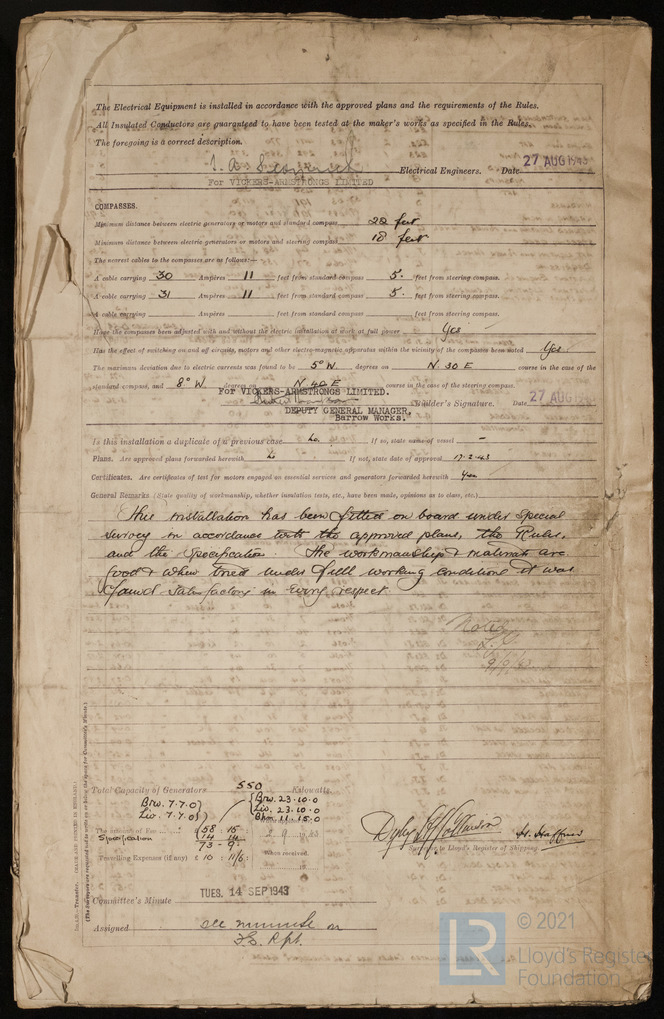 The Electrical Equipment is installed in accordance with the approved plans and the requirements of the Rules.
All Insulated Conductors are guaranteed to have been tested at the maker's works as specified in the Rules.
The foregoing is a correct description.
Electrical Engineers. Date 27 AUG 1943
For VICKERS-ARMSTRONGS LIMITED
COMPASSES.
Minimum distance between electric generators or motors and standard compass 22 feet
Minimum distance between electric generators or motors and steering compass 18 feet
The nearest cables to the compasses are as follows:—
A cable carrying 30 Ampères 11 feet from standard compass 5. feet from steering compass.
A cable carrying 31 Ampères 11 feet from standard compass 5. feet from steering compass.
A cable carrying Ampères feet from standard compass feet from steering compass.
Have the compasses been adjusted with and without the electric installation at work at full power Yes
Has the effect of switching on and off circuits, motors and other electro-magnetic apparatus within the vicinity of the compasses been noted Yes
The maximum deviation due to electric currents was found to be 5° W. degrees on N. 30 E course in the case of the
standard compass, and 8° W degrees on N 42 E course in the case of the steering compass.
For VICKERS-ARMSTRONGS LIMITED.
Builder's Signature. Date 27 AUG
DEPUTY GENERAL MANAGER,
Barrow Works.
Is this installation a duplicate of a previous case No. If so, state name of vessel –
Plans. Are approved plans forwarded herewith No If not, state date of approval 17.2.43
Certificates. Are certificates of test for motors engaged on essential services and generators forwarded herewith Yes
General Remarks (State quality of workmanship, whether insulation tests, etc., have been made, opinions as to class, etc.)
This installation has been fitted on board under Special
Survey in accordance with the approved plans, the Rules,
and the Specification. The workmanship & materials are
good & when tried under full working conditions it was
found satisfactory in every respect
Noted
9/9/43
Total Capacity of Generators 550 Kilowatts.
Brw. 7.7.0
Liv. 7.7.0
Brw. 23.10.0
Liv. 23.10.0
11.15.0
The amount of Fee £ 58 : 15 :
Specification 14 14
73 - 9
Travelling Expenses (if any) £ 10 : 11/6 :
When received,
Surveyor to Lloyd's Register of Shipping.
Committee's Minute TUES. 14 SEP 1943
Assigned See minute on
F.E. Rpt.
© 2021
LR Lloyd's Register
Foundation